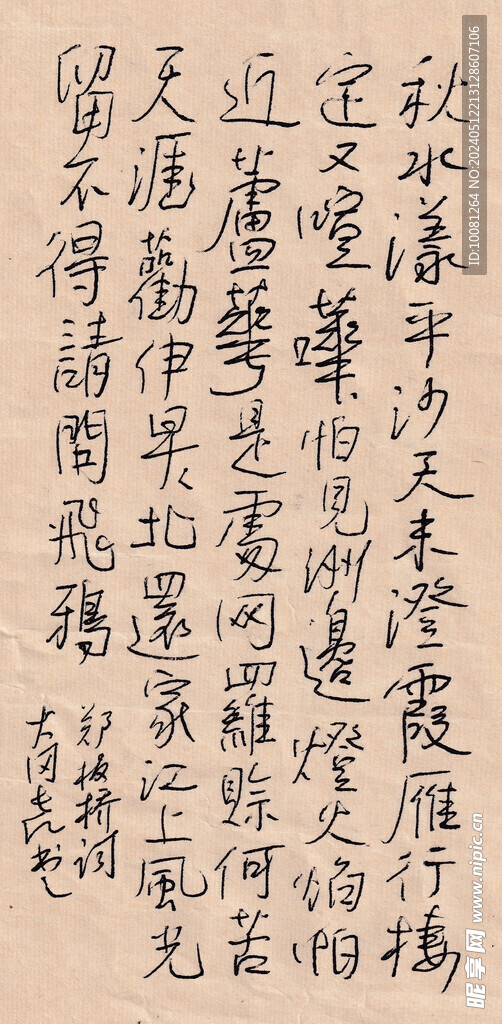 秋水漾平沙天末澄霞雁行棲
定又喧譁怕見洲邊燈火焰怕
近蘆華是處网羅賒何苦
天涯勸伊早早北還家江上風光
留不得請問飛鴉
郑板桥词
大冈 书
ID:10081264 NO:20240512213128607106
昵享网 www.nipic.cn